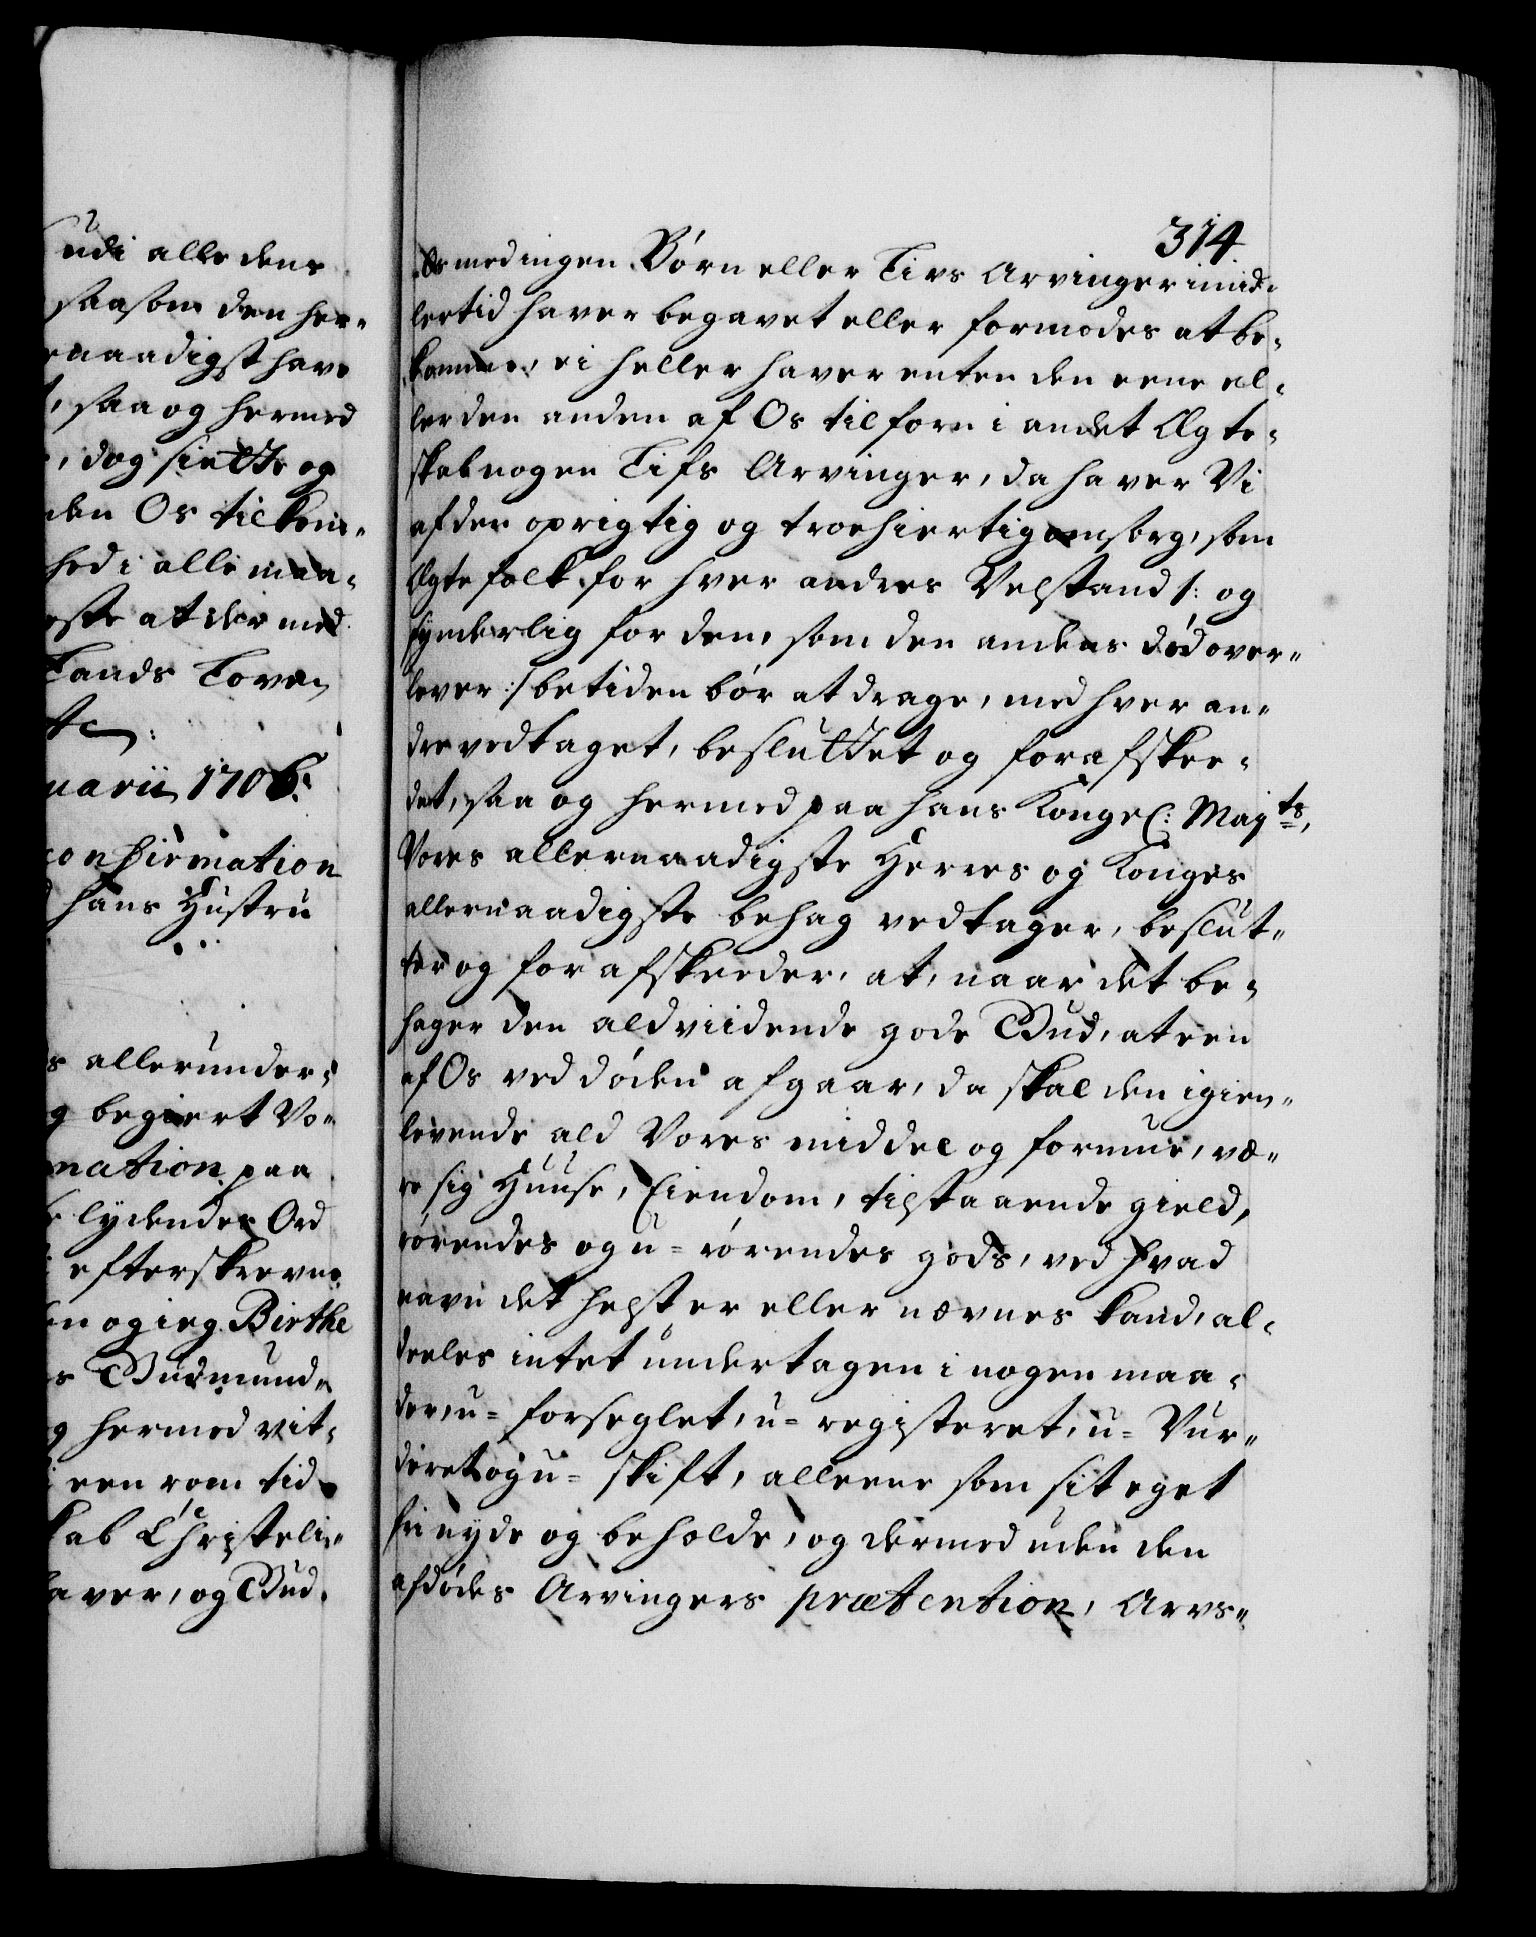 udi alle dens
saasom den her-
naadigst have
, saa og hermed
, dog siette og
den Os tilkom-
hed i alle maa-
este at der med
Lands Loven
etc:
uarii 1706.
confirmation
hans Hustru
s allerunder-
g begiert Vo-
mation paa
lydender Ord
efterskrevne
en og ieg Birthe
s Gudmund-
g hermed vit-
een rom tid
kab Christeli-
aver, og Gud
314
Os med ingen Børn eller Livs Arvinger imid-
lertid haver begavet eller formodes at be-
komme, ei heller haver enten den eene el-
ler den anden af Os tilforn i andet Ægte-
skab nogen Lifs Arvinger, da haver Vi
af den oprigtig og troehiertig omsorg, som
Ægtefolk for hver andres Velstand /: og
synderlig for den, som den andens død over-
lever :/ betiden bør at drage, med hver an-
dre vedtaget, besluttet og forafskee-
det, saa og hermed paa hans Kongel: Majts,
Vores allernaadigste Herres og Konges
allernaadigste behag vedtager, beslut-
ter og forafskeeder, at, naar det be-
hager den aldviidende gode Gud, at een
af Os ved døden afgaar, da skal den igien-
levende ald Vores middel og formue, væ-
re sig Huuse, Eiendom, tilstaaende gield,
rørendes og u-rørendes gods, ved hvad
navn det helst er eller nævnes kand, al-
deeles intet undertagen i nogen maa-
der, u-forseglet, u-registeret, u-Vur-
deret og u-skift, alleene som sit eget
frie nyde og beholde, og dermed uden den
afdødes Arvingers prætention, Arvs-